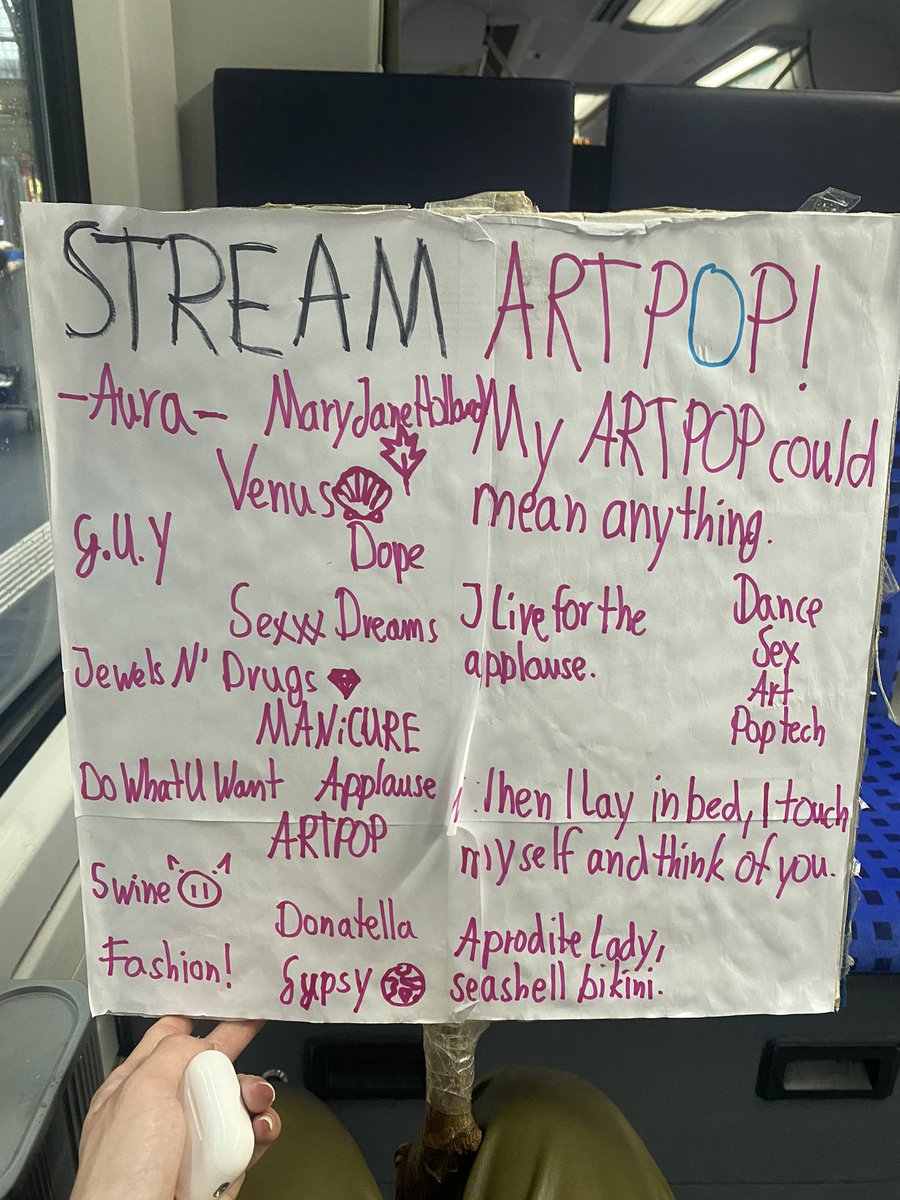 STREAM ARTPOP!
-Aura- Mary Jane Holland
Venus
G.U.Y
Dope
Sexxx Dreams
Jewels N' Drugs
MANiCURE
Do What U Want Applause
ARTPOP
Swine
Donatella
Fashion!
Gypsy
My ARTPOP could
mean anything.
I Live for the
applause.
Dance
Sex
Art
Pop tech
When I lay in bed, I touch
myself and think of you.
Aprodite Lady,
seashell bikini.